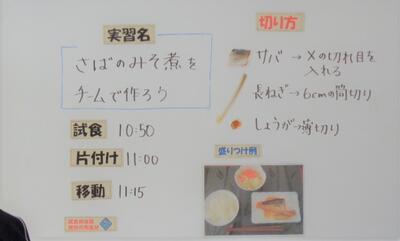 実習名
さばのみそ煮を
チームで作ろう
試食 10:50
片付け 11:00
移動 11:15
切り方
サバ→×の切れ目を
入れる
長ねぎ→6cmの筒切り
しょうが→薄切り
盛りつけ例